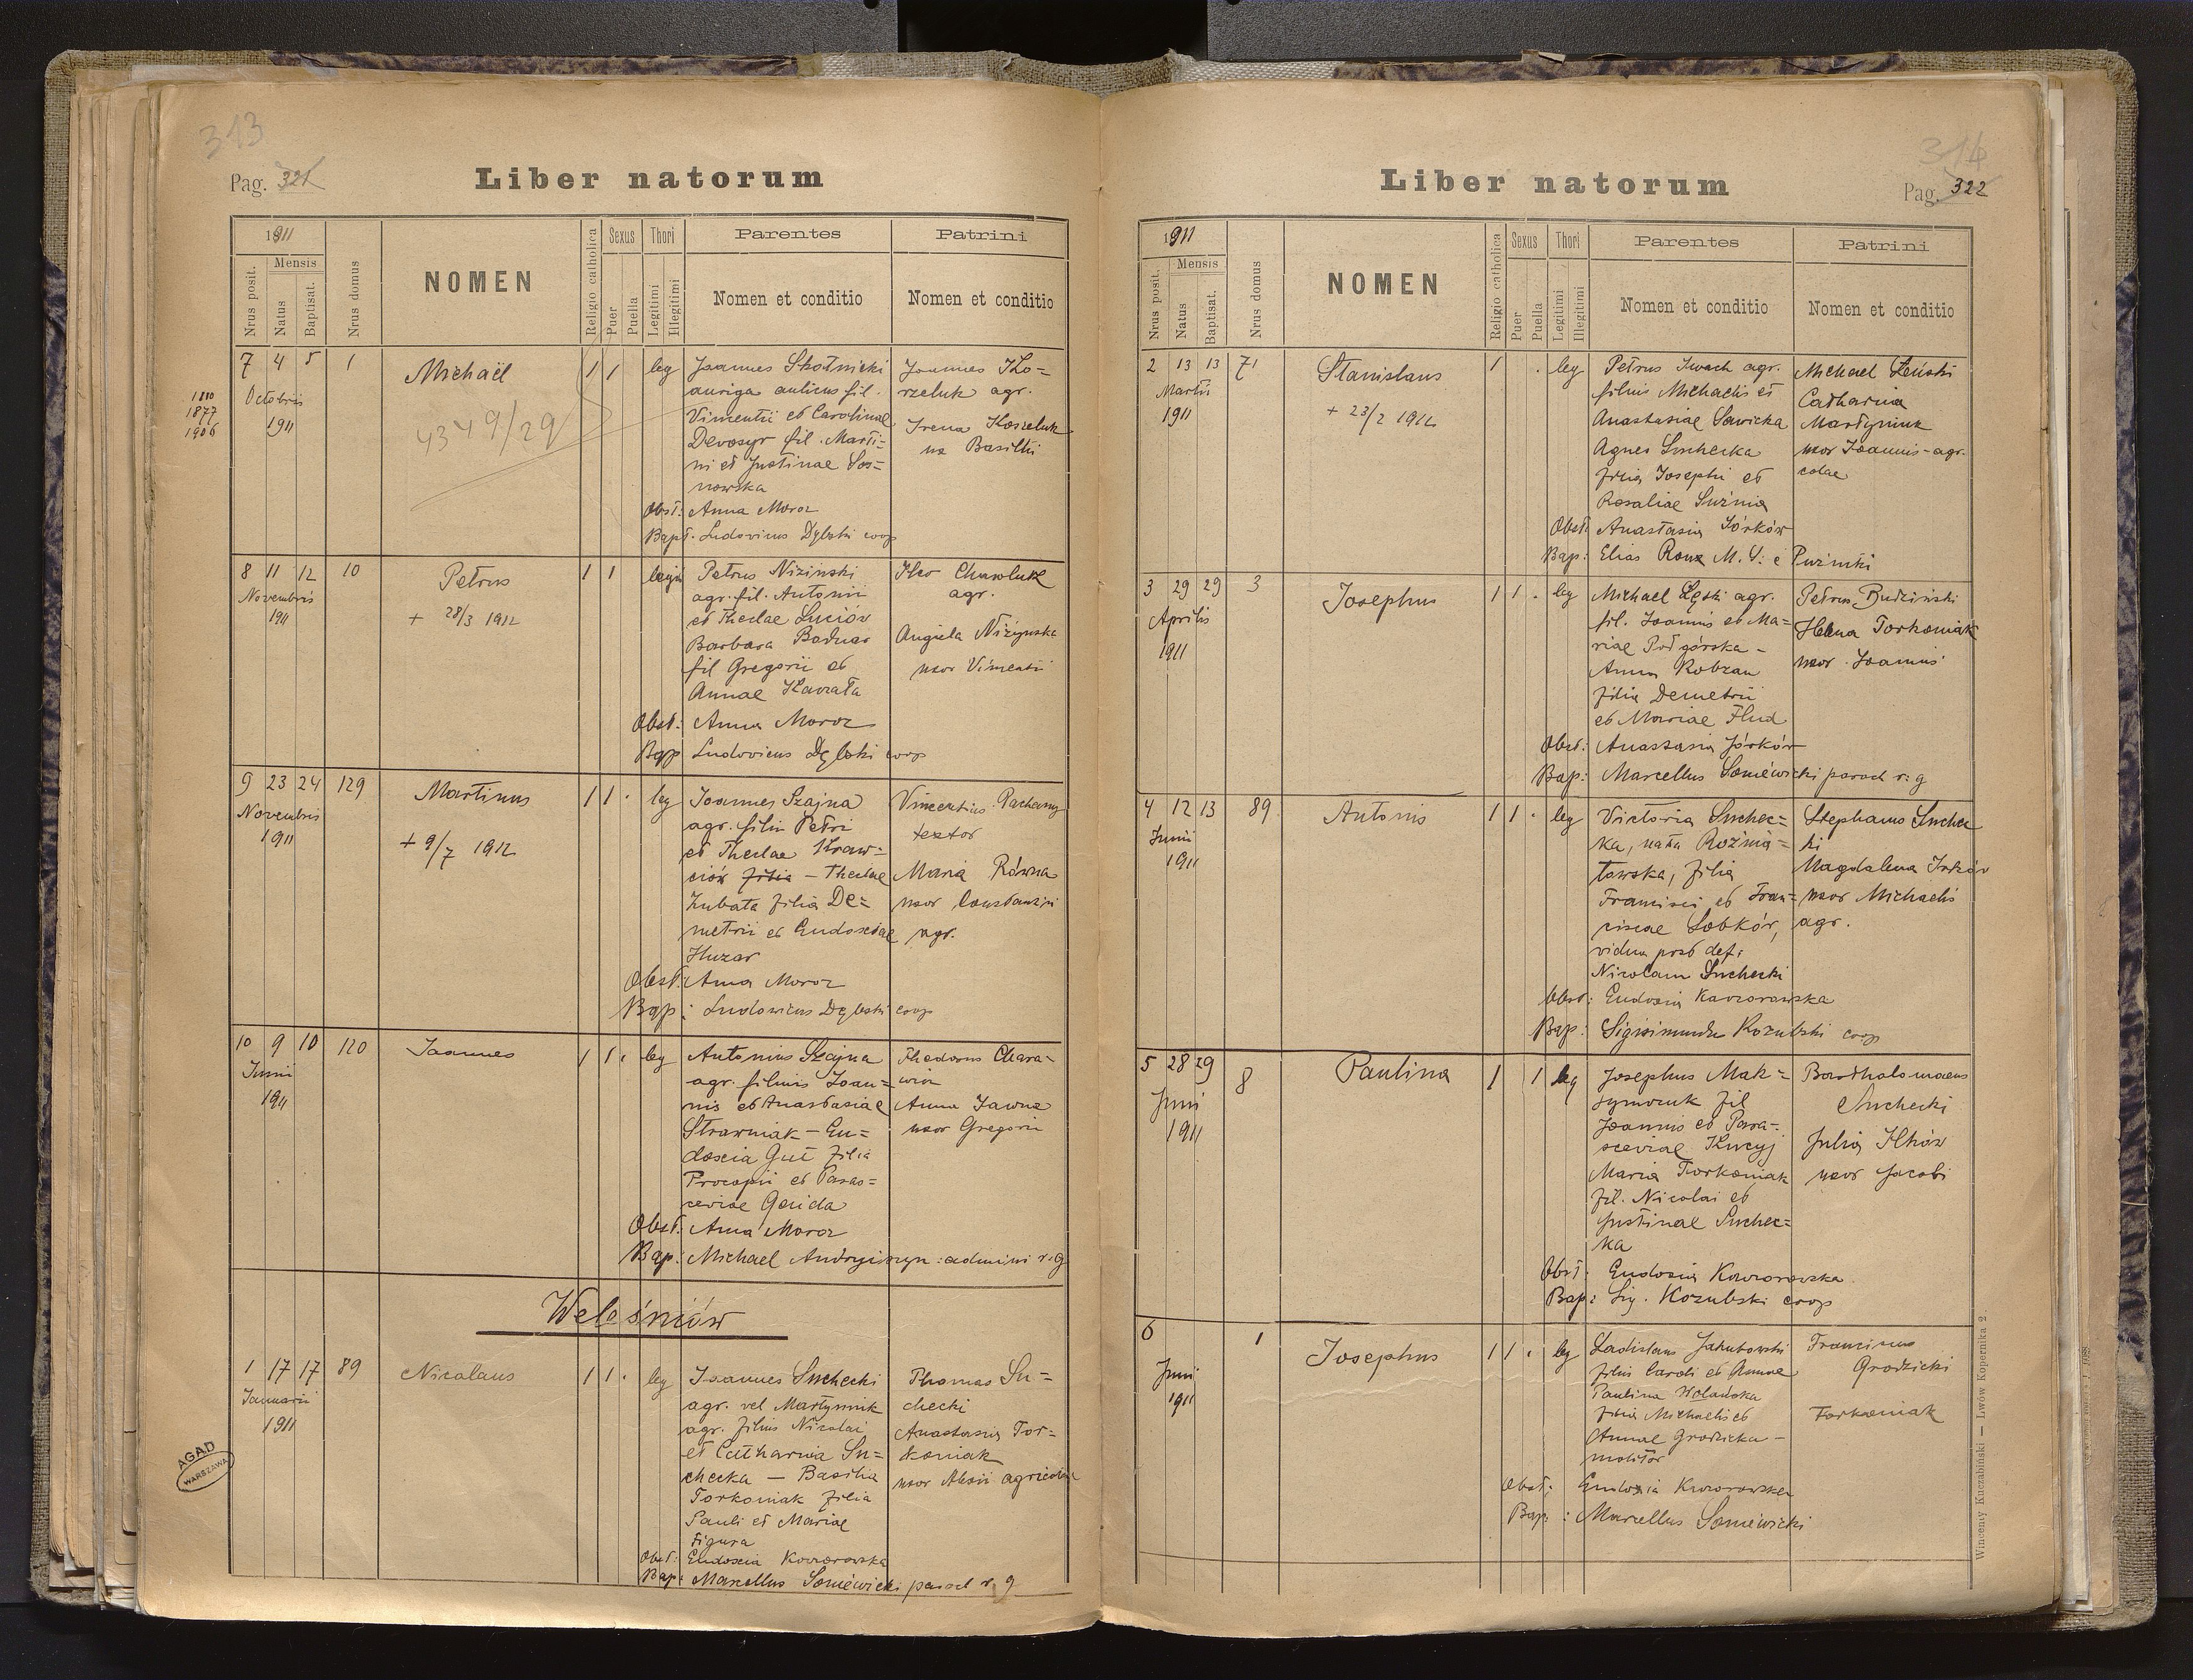 313
Pag. 321
Liber natorum
1911
Nrus posit.
Mensis
Natus
Baptisat.
Nrus domus
NOMEN
Religio catholica
Sexus
Puer
Puella
Thori
Legitimi
Illegitimi
Parentes
Nomen et conditio
Patrini
Nomen et conditio
7 4 5 1
Octobris
1911
1877
1906
Michaël
4349/29
1 1 leg
Joannes Skotnicki
auriga aulicus fil.
Vincentii et Carolinae
fil. Marti=
ni et Justinae Sos=
nowska
Obst: Anna Moroz
Bapt. Ludovicus Dębski coop
Joannes Ko=
rzeluk agr.
Irena
Basilii
8 11 12 10
Novembris
1911
Petrus
+ 28/3 1912
1 1
Petrus Nizinski
agr. fil. Antonii
et Theclae Luciów
Barbara Bodnar
fil Gregorii et
Annae
Obst: Anna Moroz
Bap Ludovicus Dębski coop
agr.
Angela Niżynska
uxor Vincentii
9 23 24 129
Novembris
1911
Martinus
+ 9/7 1912
1 1 . leg
Joannes Szajna
agr. filius Petri
et Theclae Kraw=
ców filia - Theclae
Zubata filia De=
metrii et Eudosciae
Huzar
Obst: Anna Moroz
Bap: Ludowicus Dębski coop
Vincentius
textor
Maria Równa
uxor Constantini
agr.
10 9 10 120
Junii
1911
Joannes
1 1 . leg
Antonius Szajna
agr. filius Joan=
nis et Anastasiae
Strawniak - Eu=
doscia Gut filia
Procopii et Paras=
ceviae
Obst: Anna Moroz
Bap: Michael Andryiszyn: admini r. g
Theodorus
Anna Jawna
uxor Gregorii
Weleśniów
1 17 17 89
Januarii
1911
Nicolaus
1 1 . leg
Joannes Suchecki
agr. vel Martyniuk
agr. filius Nicolai
et Catharina Su=
checka — Basilia
Torkoniak filia
Pauli et Mariae
Figura
Obst: Eudoscia Kaczorowska
Bap: Marcellus Soniewicki paroch r. g
Thomas Su=
checki
Anastasia Tor=
koniak
uxor Alexii agricolae
AGAD
WARSZAWA
314
Pag. 322
Liber natorum
1911
Nrus posit.
Mensis
Natus
Baptisat.
Nrus domus
NOMEN
Religio catholica
Sexus
Puer
Puella
Thori
Legitimi
Illegitimi
Parentes
Nomen et conditio
Patrini
Nomen et conditio
2 13 13 71
Martii
1911
Stanislaus
+ 23/2 1912
1 . leg
Petrus Iwach agr.
filius Michaelis et
Anastasiae Sawicka
Agnes Suchecka
filia Josephi et
Rosaliae
Obst: Anastasia Jórków
Bap: Elias
Michael
Catharina
Martyniuk
uxor Joannis - agri
colae
3 29 29 3
Aprilis
1911
Josephus
1 1 . leg
Michael Łęski agr.
fil. Joannis et Ma=
riae Podgórska -
Anna Kobzan
filia Demetrii
et Mariae Hlud
Obst: Anastasia Jórków
Bap: Marcellus Soniewicki paroch r: g
Petrus Budziński
Helena Torkoniak
uxor Joannis
4 12 13 89
Junii
1911
Antonius
1 1 . leg
Victoria Suchec=
ka, nata Rożnia=
towska, filia
Francisci et Fran=
ciscae Sobków,
vidua post def:
Nicolaum Suchecki
Obst: Eudoxia Kaczorowska
Bap: Sigismundus Kozubski coop
Stephanus Suchec
ki
Magdalena Jórków
uxor Michaelis
agr.
5 28 29 8
Juni
1911
Paulina
1 1 leg
Josephus Mak=
symczuk fil
Joannis et Para=
sceviae Kucyj
Maria Torkoniak
fil. Nicolai et
Justinae Suchec=
ka
Obst: Eudoxia Kaczorowska
Bap: Sig. Kozubski coop
Bartholomaeus
Suchecki
Julia Ilków
uxor Jacobi
6 1
Juni
1911
Josephus
1 1 . leg
Ladislaus Jakubowski
filius Caroli et Annae
Paulina Wolańska
filia Michaelis et
Annae Grodzicka -
molitor
Obst: Eudoxia Kaczorowska
Bap: Marcellus Soniewicki
Franciscus
Grodzicki
Torkoniak
Wincenty Kuczabiński — Lwów Kopernika 2